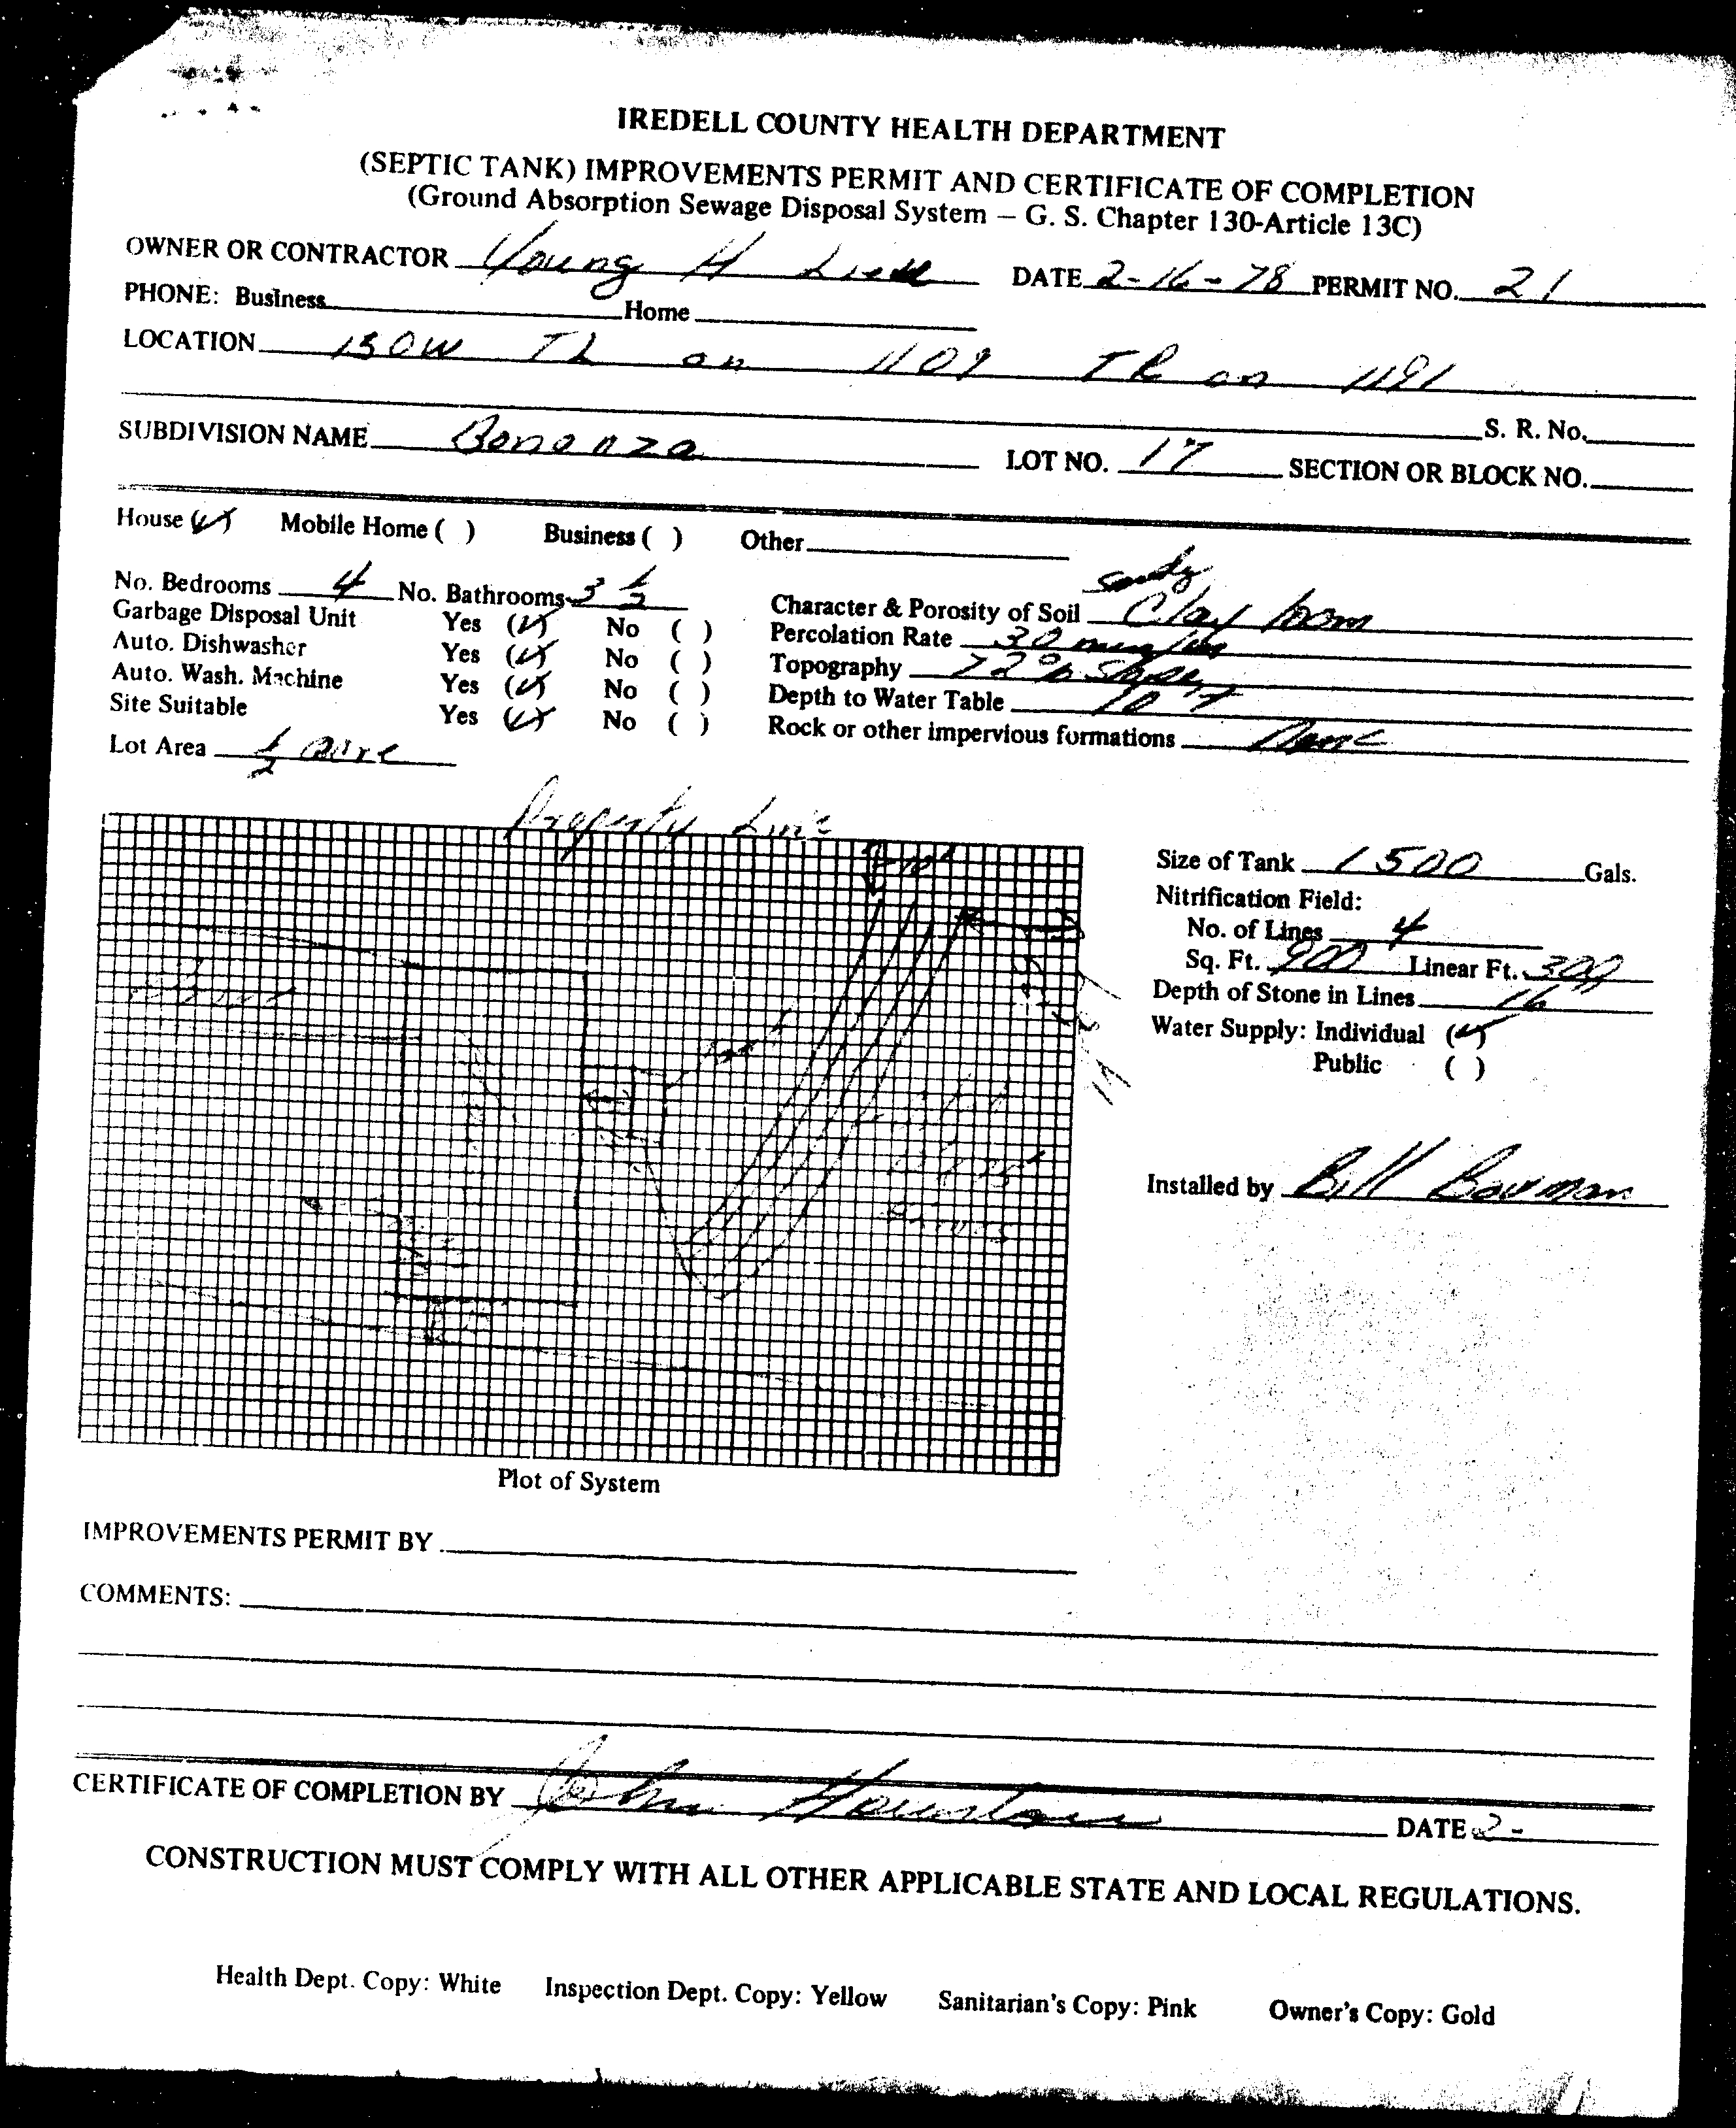 IREDELL COUNTY HEALTH DEPARTMENT
(SEPTIC TANK) IMPROVEMENTS PERMIT AND CERTIFICATE OF COMPLETION
(Ground Absorption Sewage Disposal System – G. S. Chapter 130-Article 13C)
OWNER OR CONTRACTOR Young H DATE 2-16-78 PERMIT NO. 21
PHONE: Business Home
LOCATION 150W TL on 1109 TR on 1191
S. R. No.
SUBDIVISION NAME Bonanza LOT NO. 17 SECTION OR BLOCK NO.
House (✓) Mobile Home ( ) Business ( ) Other
No. Bedrooms 4 No. Bathrooms 3 1/2 Character & Porosity of Soil Sandy Clay loam
Garbage Disposal Unit Yes (✓) No ( ) Percolation Rate 30 min/in
Auto. Dishwasher Yes (✓) No ( ) Topography
Auto. Wash. Machine Yes (✓) No ( ) Depth to Water Table
Site Suitable Yes (✓) No ( ) Rock or other impervious formations None
Lot Area 1/2 acre
Property Line
10'
Size of Tank 1500 Gals.
Nitrification Field:
No. of Lines 4
Sq. Ft. 900 Linear Ft. 300
Depth of Stone in Lines 16
Water Supply: Individual (✓)
Public ( )
Installed by Bill Bowman
Plot of System
IMPROVEMENTS PERMIT BY
COMMENTS:
CERTIFICATE OF COMPLETION BY John DATE 2-
CONSTRUCTION MUST COMPLY WITH ALL OTHER APPLICABLE STATE AND LOCAL REGULATIONS.
Health Dept. Copy: White Inspection Dept. Copy: Yellow Sanitarian's Copy: Pink Owner's Copy: Gold